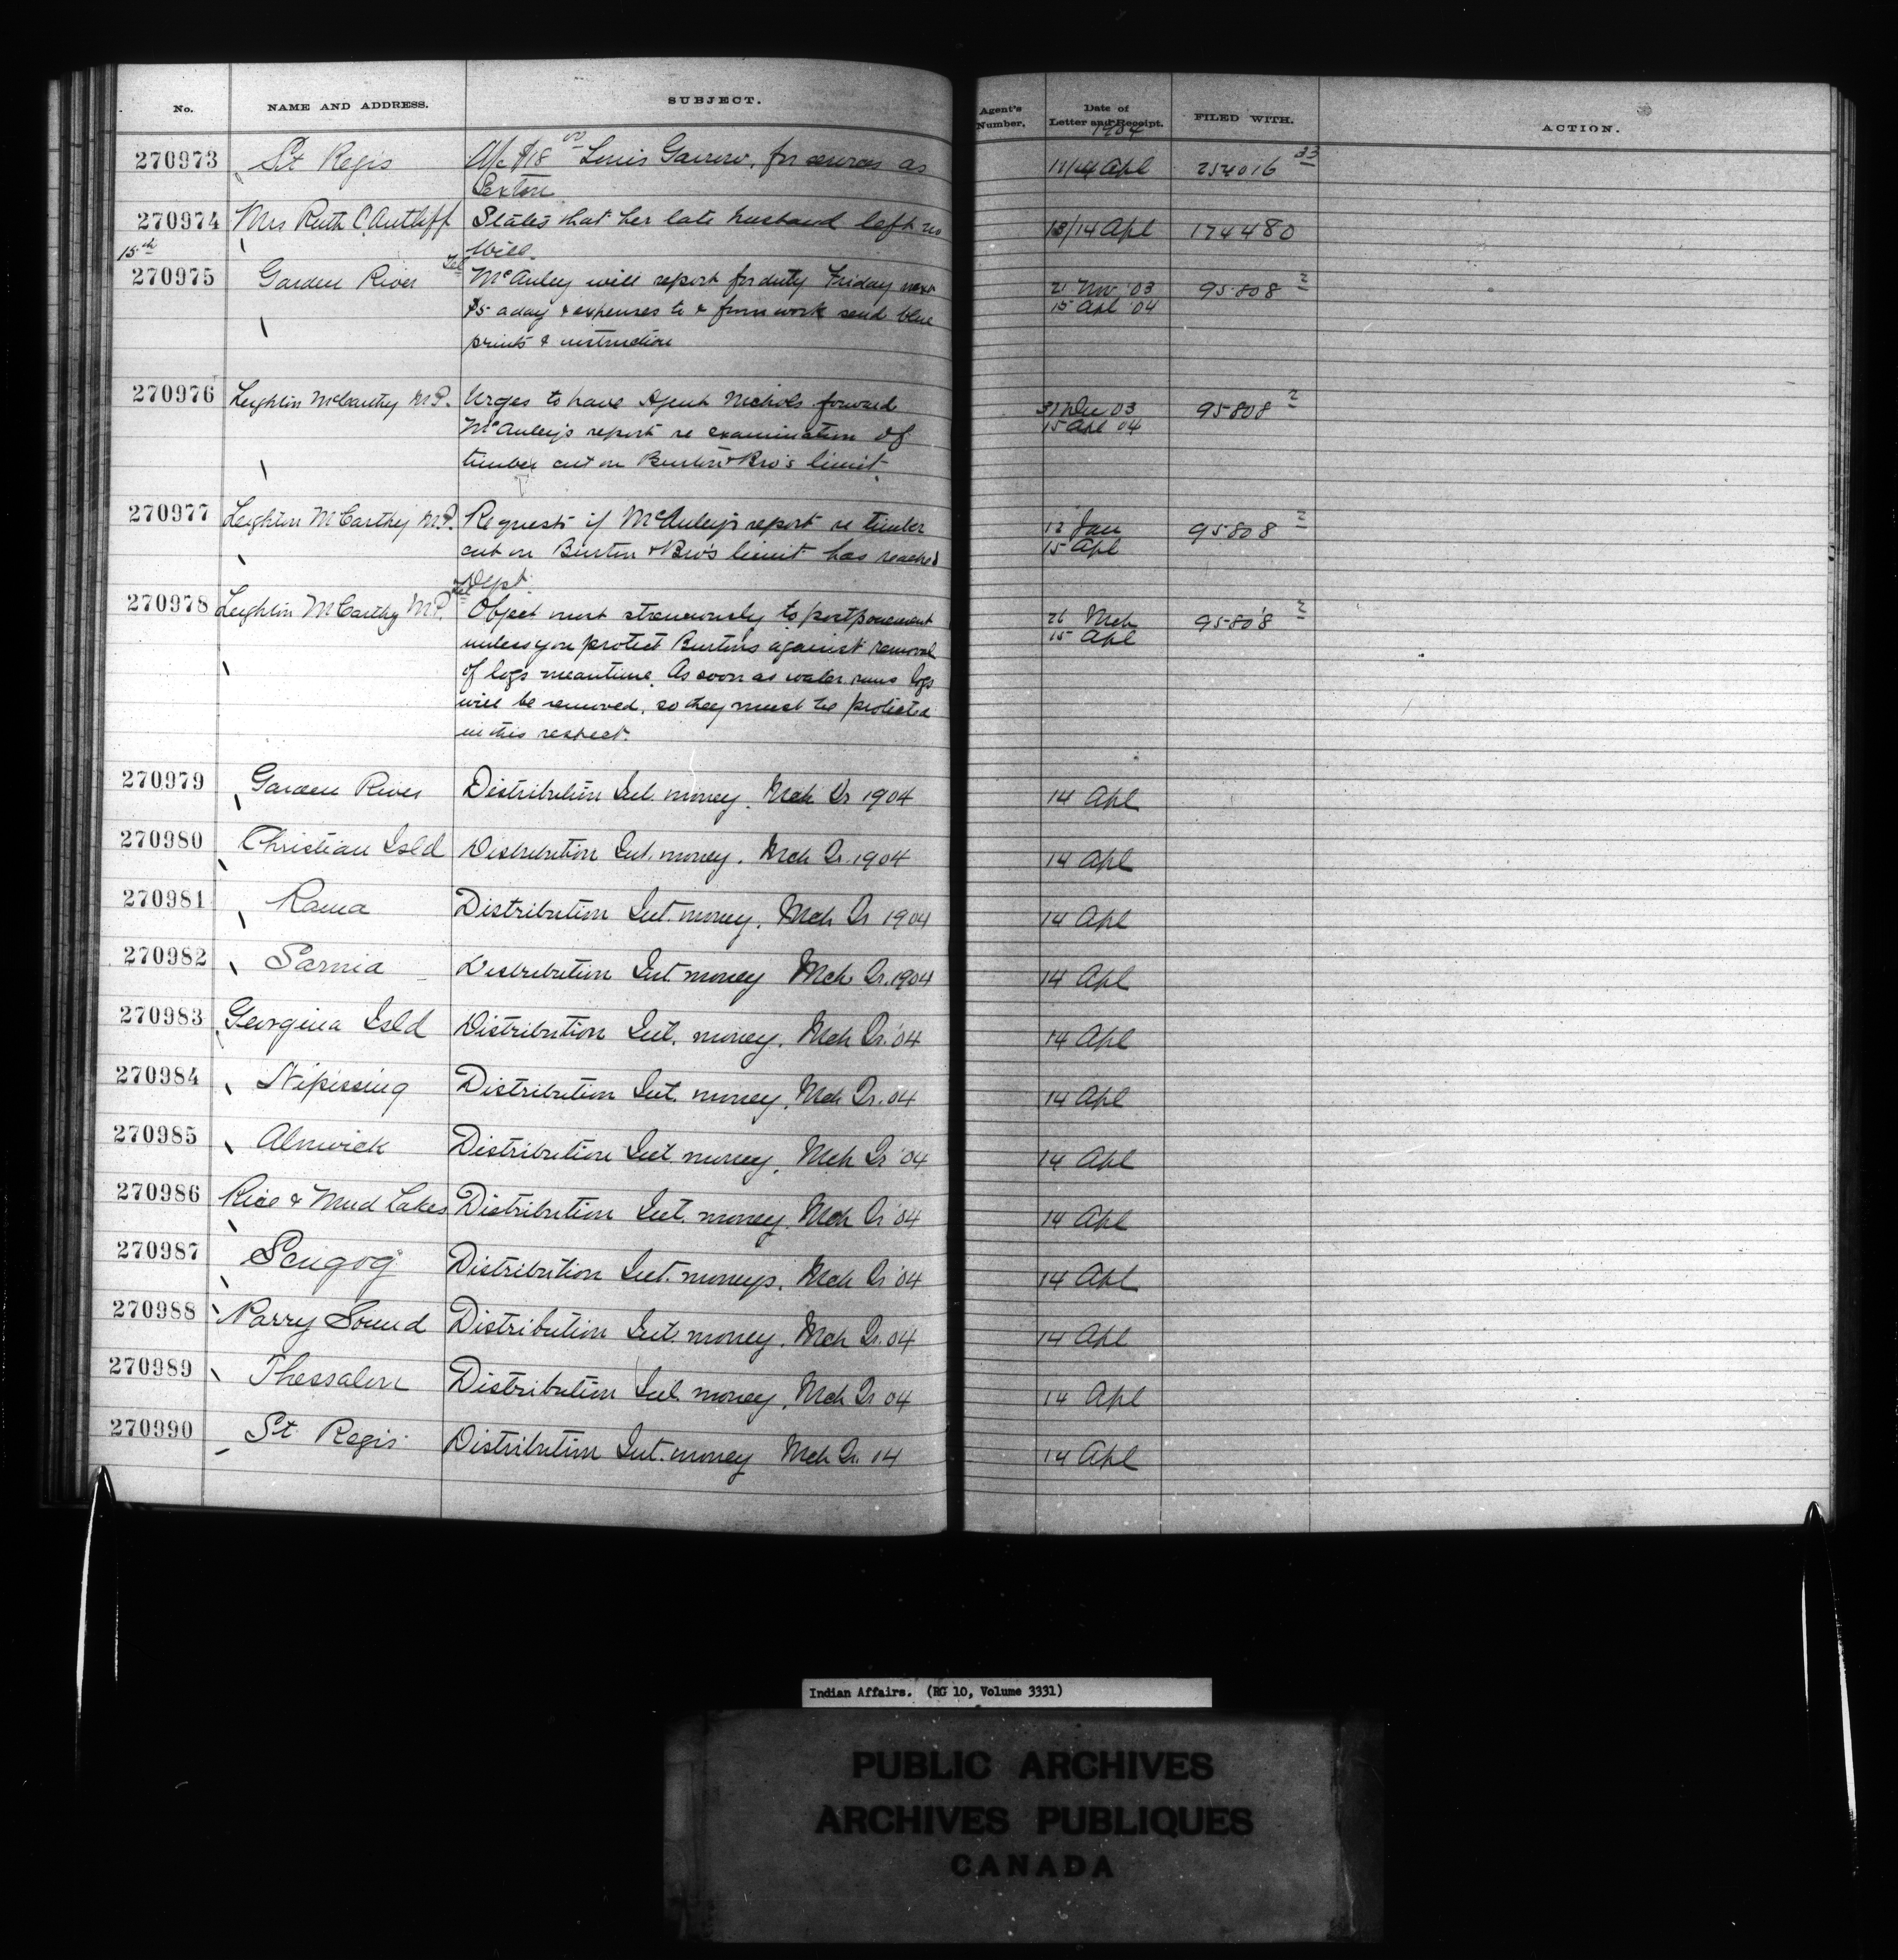 No. NAME AND ADDRESS. SUBJECT. Agent's Number. Date of Letter and Receipt. FILED WITH. ACTION.
1904
270973 St Regis A/c $18 00 Louis Garrow, for services as 11/14 Apl 254016 33
Sexton
270974 Mrs Ruth C. Antliff States that her late husband left no 13/14 Apl 174480
Will.
15th
270975 Garden River Tel McAuley will report for duty Friday next 21 Nov '03 95808 2
$5 a day & expenses to & from work send blue 15 Apl '04
prints & instruction
270976 Leighton McCarthy M.P. Urges to have Agent Nichols forward 31 Dec 03 95808 2
McAuley's report re examination of 15 Apl 04
timber cut on Burton & Bro's limit.
270977 Leighton McCarthy M.P. Requests if McAuley's report re timber 12 Jan 95808 2
cut on Burton & Bro's limit has reached 15 Apl
Dept.
270978 Leighton McCarthy M.P. Tel Object most strenuously to postponement 26 Mch 95808 2
unless you protect Burtons against removal 15 Apl
of logs meantime. As soon as water runs logs
will be removed, so they must be protected
in this respect.
270979 Garden River Distribution Int. money. Mch Qr 1904 14 Apl
270980 Christian Isld Distribution Int. money. Mch Qr. 1904 14 Apl
270981 Rama Distribution Int. money. Mch Qr 1904 14 Apl
270982 Sarnia Distribution Int money Mch Qr. 1904 14 Apl
270983 Georgina Isld Distribution Int. money. Mch Qr. '04 14 Apl
270984 Nipissing Distribution Int. money. Mch Qr. 04 14 Apl
270985 Alnwick Distribution Int. money. Mch Qr '04 14 Apl
270986 Rice & Mud Lakes Distribution Int. money. Mch Qr '04 14 Apl
270987 Scugog Distribution Int. moneys. Mch Qr '04 14 Apl
270988 Parry Sound Distribution Int. money. Mch Qr. 04 14 Apl
270989 Thessalon Distribution Int. money. Mch Qr 04 14 Apl
270990 St. Regis Distribution Int. money Mch Qr. 14 14 Apl
Indian Affairs. (RG 10, Volume 3331)
PUBLIC ARCHIVES
ARCHIVES PUBLIQUES
CANADA